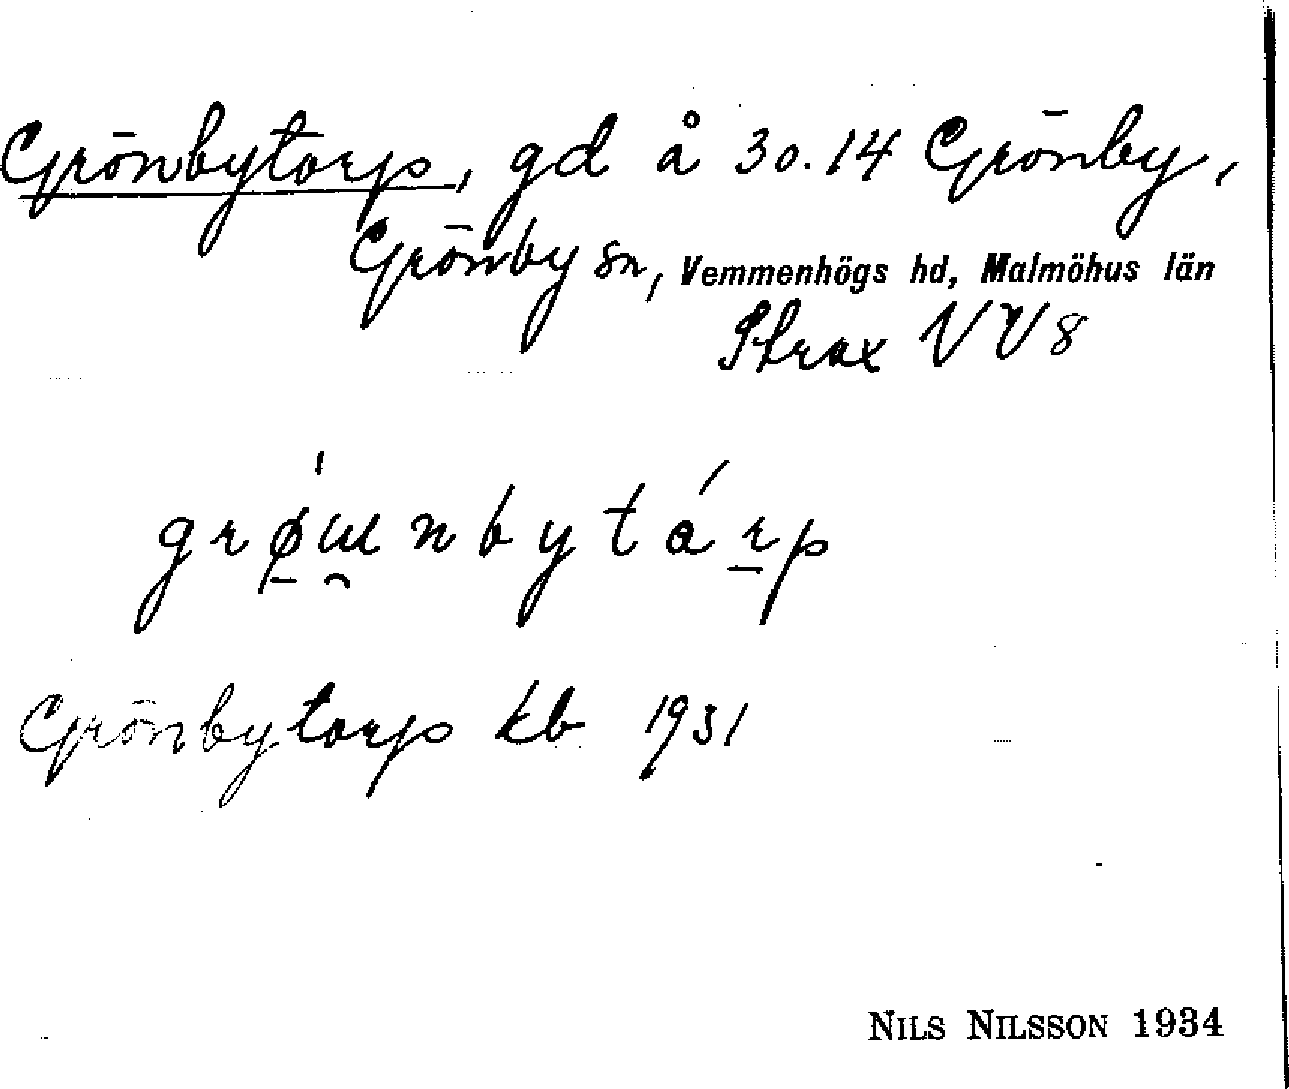 Grönbytorp, gd å 30.14 Grönby,
Grönby sn, Vemmenhögs hd, Malmöhus län
Strax VV8
grø̱ɯ̯nbytárp
Grönbytorp kb 1931
NILS NILSSON 1934